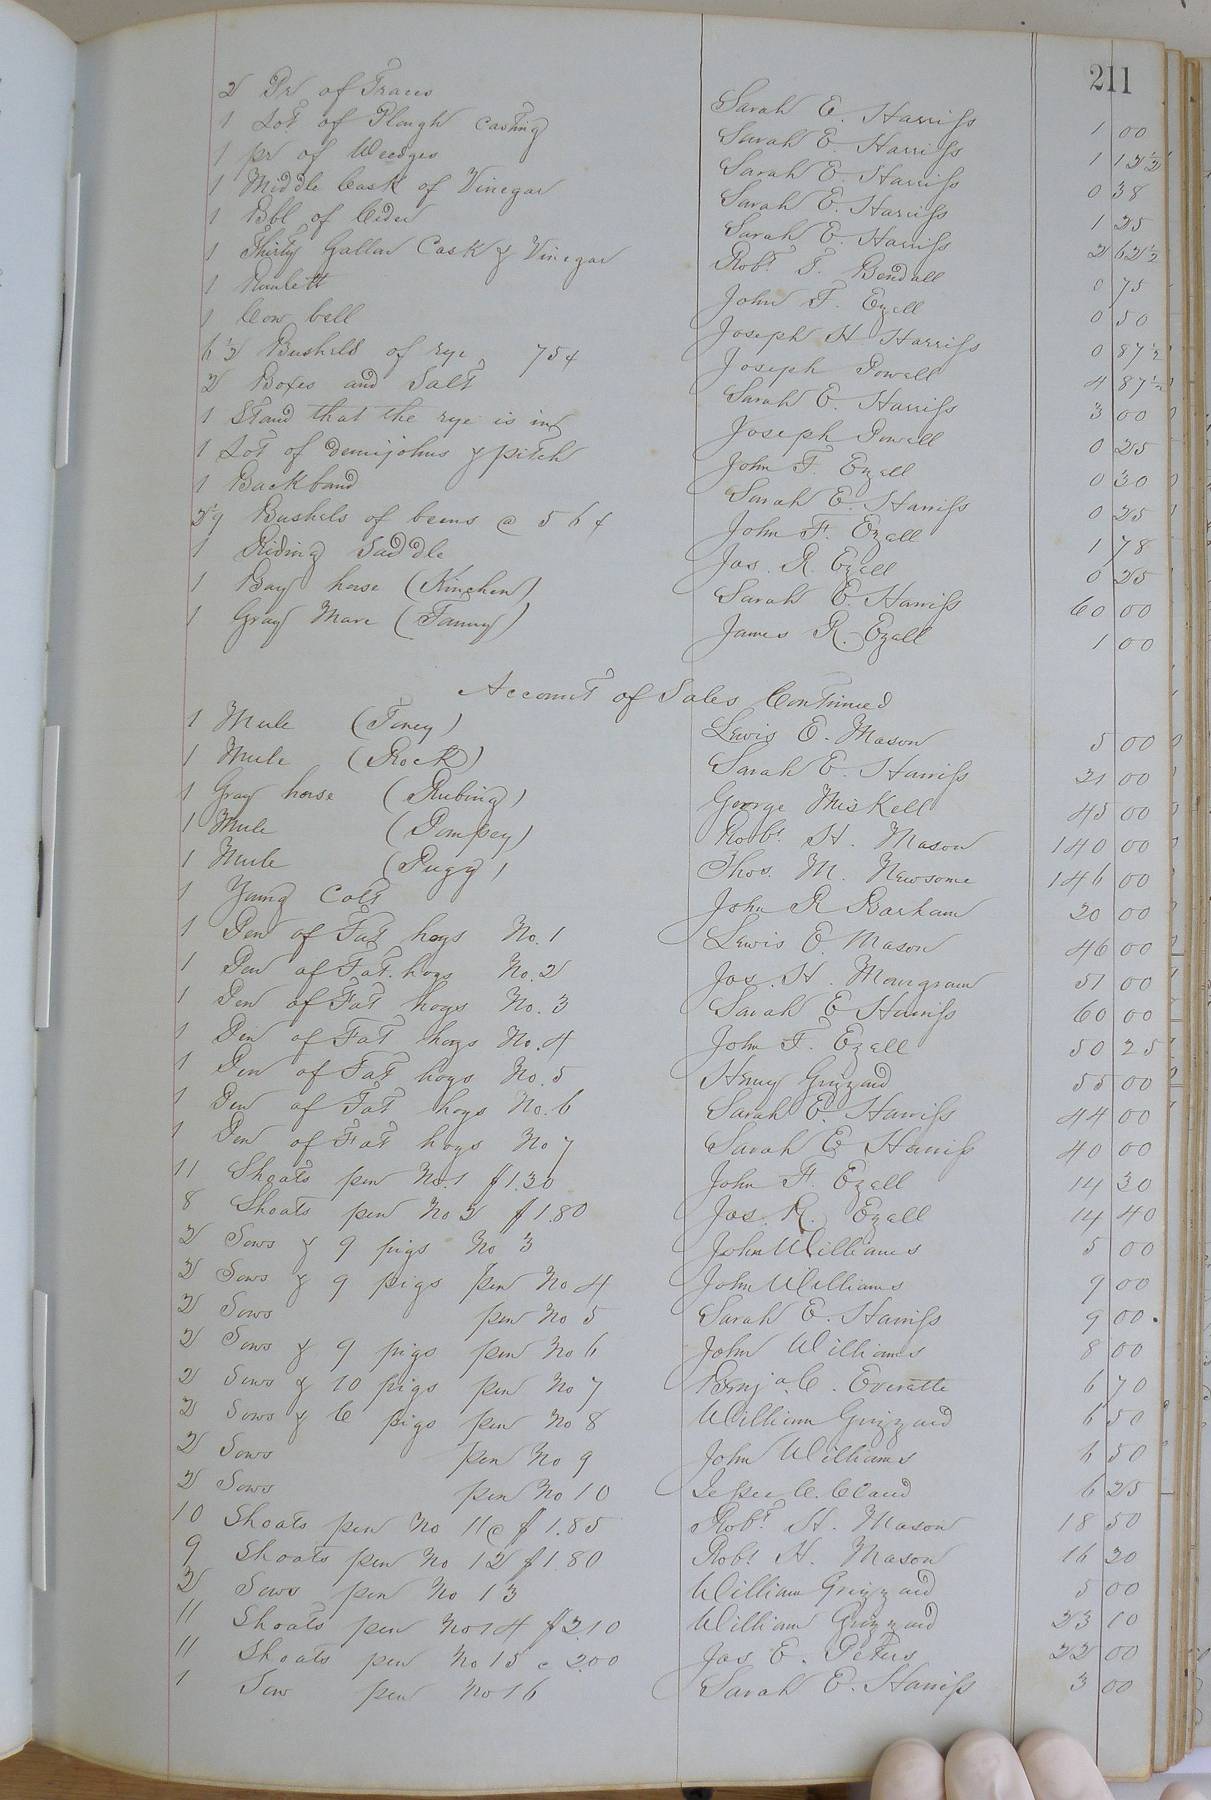 211
2 Pr of Traces Sarah E. Harriss 1 00
1 Lot of Plough Casting Sarah E. Harriss 1 12½
1 pr of Weedges Sarah E. Harriss 0 38
1 Middle Cask of Vinegar Sarah E. Harriss 1 25
1 Bbl of Cider Sarah E. Harriss 2 62½
1 Thirty Gallon Cask & Vinegar Robt. T. Bendall 0 75
1 Runlett John F. Ezell 0 50
1 Cow bell Joseph H Harriss 0 87½
6½ Bushels of rye 75¢ Joseph Powell 4 87½
2 Boxes and Salt Sarah E. Harriss 3 00
1 Stand that the rye is in Joseph Powell 0 25
1 Lot of demijohns & pitch John F. Ezell 0 30
1 Backband Sarah E. Harriss 0 25
Bushels of beens @ 56¢ John F. Ezell 1 78
1 Riding Saddle Jas. R. Ezell 0 25
1 Bay horse (Kinchen) Sarah E. Harriss 60 00
1 Gray Mare (Fanny) James R. Ezell 1 00
Account of Sales Continued
1 Mule (Toney) Lewis E. Mason 5 00
1 Mule (Rock) Sarah E. Harriss 21 00
1 Gray horse (Rubing) George Miskell 45 00
1 Mule (Pompey) Robt. H. Mason 140 00
1 Mule (Pugg) Thos. M. Newsome 146 00
1 Young Colt John R Barham 20 00
1 Pen of Fat hogs No. 1 Lewis E Mason 46 00
1 Pen of Fat hogs No. 2 Jas. H. 51 00
1 Pen of Fat hogs No. 3 Sarah E Harriss 60 00
1 Pen of Fat hogs No. 4 John F. Ezell 50 25
1 Pen of Fat hogs No. 5 Henry Grizzard 55 00
1 Pen of Fat hogs No. 6 Sarah E. Harriss 44 00
1 Pen of Fat hogs No 7 Sarah E Harriss 40 00
11 Shoats pen No. 1 $1.30 John F. Ezell 14 30
8 Shoats pen No 2 $1.80 Jas. R. Ezell 14 40
2 Sows & 9 pigs No 3 John Williams 5 00
2 Sows & 9 pigs pen No 4 John Williams 9 00
2 Sows pen No 5 Sarah E. Harriss 9 00
2 Sows & 9 pigs pen No 6 John Williams 8 00
2 Sows & 10 pigs pen No 7 Benja. C. Everette 6 70
2 Sows & 6 pigs pen No 8 William Grizzard 6 50
2 Sows pen No 9 John Williams 6 50
2 Sows pen No 10 Jesse C. Claud 6 25
10 Shoats pen No 11 @ $1.85 Robt. H. Mason 18 50
9 Shoats pen No 12 $1.80 Robt H. Mason 16 20
2 Sows pen No 13 William Grizzard 5 00
11 Shoats pen No 14 $2.10 William Grizzard 23 10
11 Shoats pen No 15 @ 2.00 Jas E. Peters 22 00
1 Sow pen No 16 Sarah E. Harriss 3 00